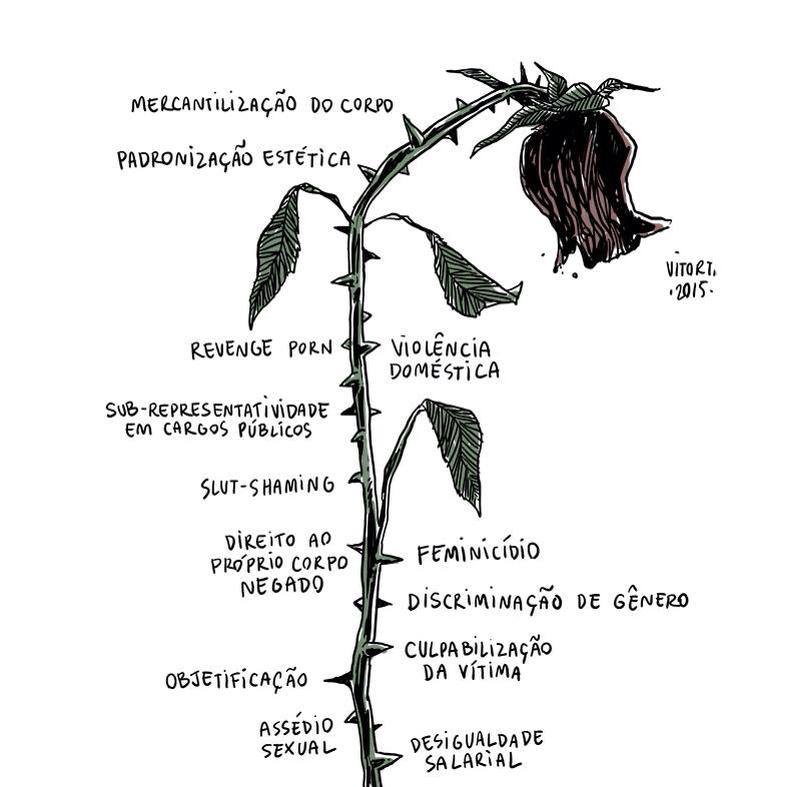 MERCANTILIZAÇÃO DO CORPO
PADRONIZAÇÃO ESTÉTICA
VITORT.
.2015.
REVENGE PORN
VIOLÊNCIA
DOMÉSTICA
SUB-REPRESENTATIVIDADE
EM CARGOS PÚBLICOS
SLUT-SHAMING
DIREITO AO
PRÓPRIO CORPO
NEGADO
FEMINICÍDIO
DISCRIMINAÇÃO DE GÊNERO
CULPABILIZAÇÃO
DA VÍTIMA
OBJETIFICAÇÃO
ASSÉDIO
SEXUAL
DESIGUALDADE
SALARIAL